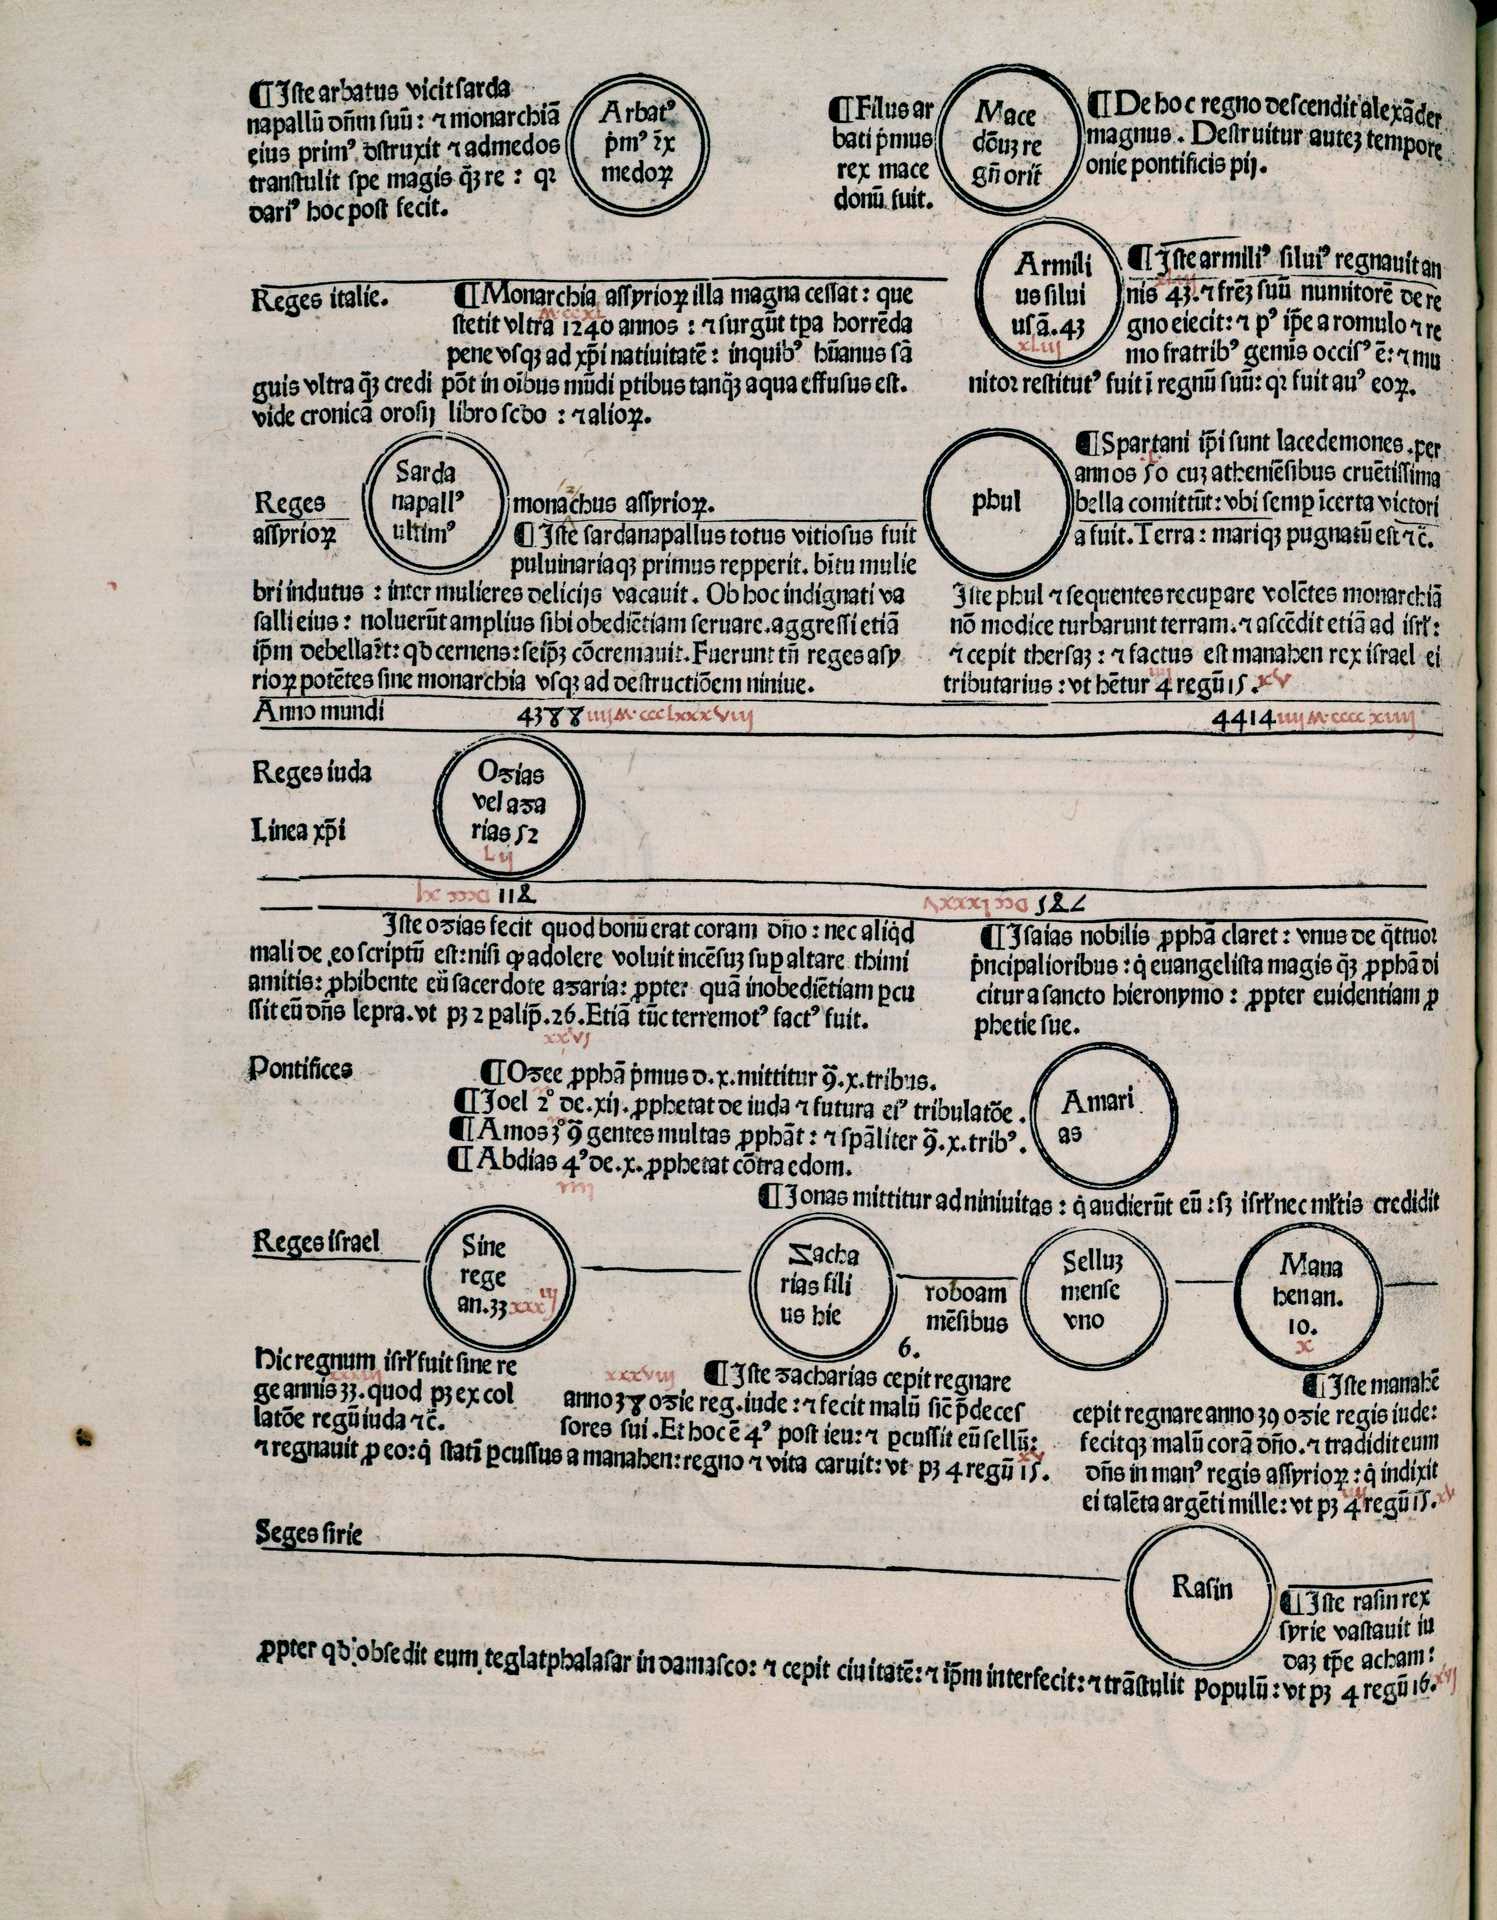 ¶ Iste arbatus vicit sarda
napallū dn̄m suū: ⁊ monarchiā
eius primꝰ dstruxit ⁊ ad medos
transtulit spe magis q̄ʒ re: qꝛ
dariꝰ hoc post fecit.
Arbatꝰ
p̄mꝰ rex
medoꝝ
¶ Filus ar
bati p̄mus
rex mace
donū fuit.
Mace
donuʒ re
gn̄ orit̄
¶ De hoc regno descendit alexāder
magnus. Destruitur auteʒ tempore
onie pontificis pij.
Reges italie.
¶ Monarchia assyrioꝝ illa magna cessat: que
M.ccxl
stetit vltra 1240 annos: ⁊ surgūt tp̄a horrēda
pene vsqʒ ad xp̄i natiuitatē: in quibꝰ hūanus sā
guis vltra q̄ʒ credi pōt in oībus mūdi ꝑtibus tanq̄ʒ aqua effusus est.
vide cronicā orosij libro scdo: ⁊ alioꝝ.
Armili
us silui
us ā. 43
xliij
¶ Iste armiliꝰ siluiꝰ regnauit an
xliij
nis 43. ⁊ frēʒ suū numitorē de re
gno eiecit: ⁊ pꝰ ip̄e a romulo ⁊ re
mo fratribꝰ gemīs occisꝰ ē: ⁊ mu
nitoꝛ restitutꝰ fuit ī regnū suū: qꝛ fuit auꝰ eoꝝ.
Reges
assyrioꝝ
Sarda
napallꝰ
ultimꝰ
monachus assyrioꝝ.
¶ Iste sardanapallus totus vitiosus fuit
puluinariaqʒ primus repperit. bītu mulie
bri indutus: inter mulieres delicijs vacauit. Ob hoc indignati va
salli eius: noluerūt amplius sibi obediētiam seruare. aggressi etiā
ip̄m debellar̄t: qd cernens: seip̄ʒ cōcremauit. Fuerunt tn̄ reges asy
rioꝝ potētes sine monarchia vsqʒ ad destructiōem niniue.
phul
¶ Spartani ip̄i sunt lacedemones. per
annos 50 cuʒ atheniēsibus cruētissima
bella comittūt: vbi semꝑ īcerta victori
a fuit. Terra: mariqʒ pugnatū est ⁊ c̄.
Iste phul ⁊ sequentes recuꝑare volētes monarchiā
nō modice turbarunt terram. ⁊ ascēdit etiā ad isrł:
⁊ cepit thersaʒ: ⁊ factus est manahen rex israel ei
tributarius: vt hētur 4 regū 15. xv
Anno mundi 4388 iiijM.ccclxxxviij 4414 iiijM.ccccxiiij
Reges iuda
Linea xp̄i
Ozias
vel aza
rias 52
Lij
811
787
Iste ozias fecit quod bonū erat coram dn̄o: nec aliq̇d
mali de eo scriptū est: nisi ꝙ adolere voluit incēsuʒ suꝑ altare thimi
amitis: ꝓhibente eū sacerdote azaria: ꝓpter quā inobediētiam ꝑcu
ssit eū dn̄s lepra. vt pʒ 2 palip̄. 26. Etiā tūc terremotꝰ factꝰ fuit.
xxvj
¶ Isaias nobilis ꝓphā claret: vnus de q̄ttuoꝛ
p̄ncipalioribus: q̇ euangelista magis q̄ʒ ꝓphā di
citur a sancto hieronymo: ꝓpter euidentiam ꝓ
phetie sue.
Pontifices
¶ Ozee ꝓphā p̄mus d. x. mittitur ꝯ̄. x. tribus.
¶ Joel 2ꝰ de. xij. ꝓphetat de iuda ⁊ futura eiꝰ tribulatōe.
¶ Amos 3ꝰ ꝯ̄ gentes multas ꝓphāt: ⁊ spāliter ꝯ̄. x. tribꝰ.
¶ Abdias 4ꝰ de. x. ꝓphetat cōtra edom.
iiij
Amari
as
¶ Jonas mittitur ad niniuitas: q̇ audierūt eū: sʒ isrł nec młtis credidit
Reges israel
Sine
rege
an. 33 xxxiij
Zacha
rias fili
us hie
roboam
mēsibus
6.
Selluʒ
mense
vno
Mana
hen an.
10.
x
Hic regnum isrł fuit sine re
xxxiij
ge annis 33. quod pʒ ex col
latōe regū iuda ⁊ c̄.
xxxviij
¶ Iste zacharias cepit regnare
anno 38 ozie reg. iude: ⁊ fecit malū sic̄ p̄deces
sores sui. Et hoc ē 4ꝰ post ieu: ⁊ ꝑcussit eū sellū:
⁊ regnauit ꝓ eo: q̇ statī ꝑcussus a manahen: regno ⁊ vita caruit: vt pʒ 4 regū 15.
xv
¶ Iste manahē
cepit regnare anno 39 ozie regis iude:
fecitqʒ malū corā dn̄o. ⁊ tradidit eum
dn̄s in manꝰ regis assyrioꝝ: q̇ indixit
ei talēta argēti mille: vt pʒ 4 regū 15. xv
Seges sirie
Rasin
¶ Iste rasin rex
syrie vastauit iu
daʒ tp̄e acham:
ꝓpter qd obsedit eum teglatphalasar in damasco: ⁊ cepit ciuitatē: ⁊ ip̄m interfecit: ⁊ trāstulit populū: vt pʒ 4 regū 16. xvj